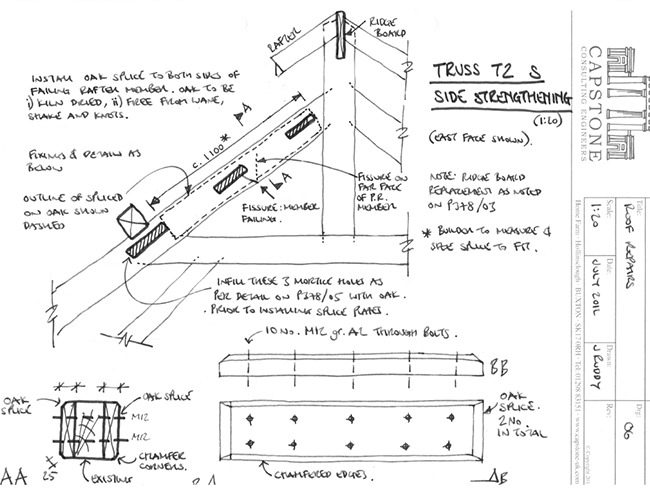 RAFTER
RIDGE
BOARD
INSTALL OAK SPLICE TO BOTH SIDES OF
FAILING RAFTER MEMBER. OAK TO BE
i) KILN DRIED, ii) FREE FROM WANE,
SHAKE AND KNOTS.
A
c. 1100 *
FIXINGS & DETAIL AS
BELOW
OUTLINE OF SPLICED
ON OAK SHOWN
DASHED
A
FISSURE: MEMBER
FAILING.
FISSURE ON
FAR FACE
OF P.R.
MEMBER
TRUSS T2 S
SIDE STRENGTHENING
(1:20)
(EAST FACE SHOWN).
NOTE: RIDGE BOARD
REPLACEMENT AS NOTED
ON P378/03
* BUILDER TO MEASURE &
SIZE SPLICE TO FIT.
INFILL THESE 3 MORTICE HOLES AS
PER DETAIL ON P378/05 WITH OAK.
PRIOR TO INSTALLING SPLICE PLATES.
10 NO. M12 gr. A2 THROUGH BOLTS.
BB
OAK
SPLICE
OAK SPLICE
M12
M12
CHAMFER
CORNERS.
25
EXISTING
AA
CHAMFERED EDGES.
OAK
SPLICE.
2 NO.
IN TOTAL
CAPSTONE
CONSULTING ENGINEERS
Title:
ROOF REPAIRS
Scale:
1:20
Date:
JULY 2012
Drawn:
J RUDDY
Drg:
06
Rev:
Home Farm · Hollinsclough · BUXTON · SK17 0RH · Tel: 01298 83151 · www.capstone-uk.com